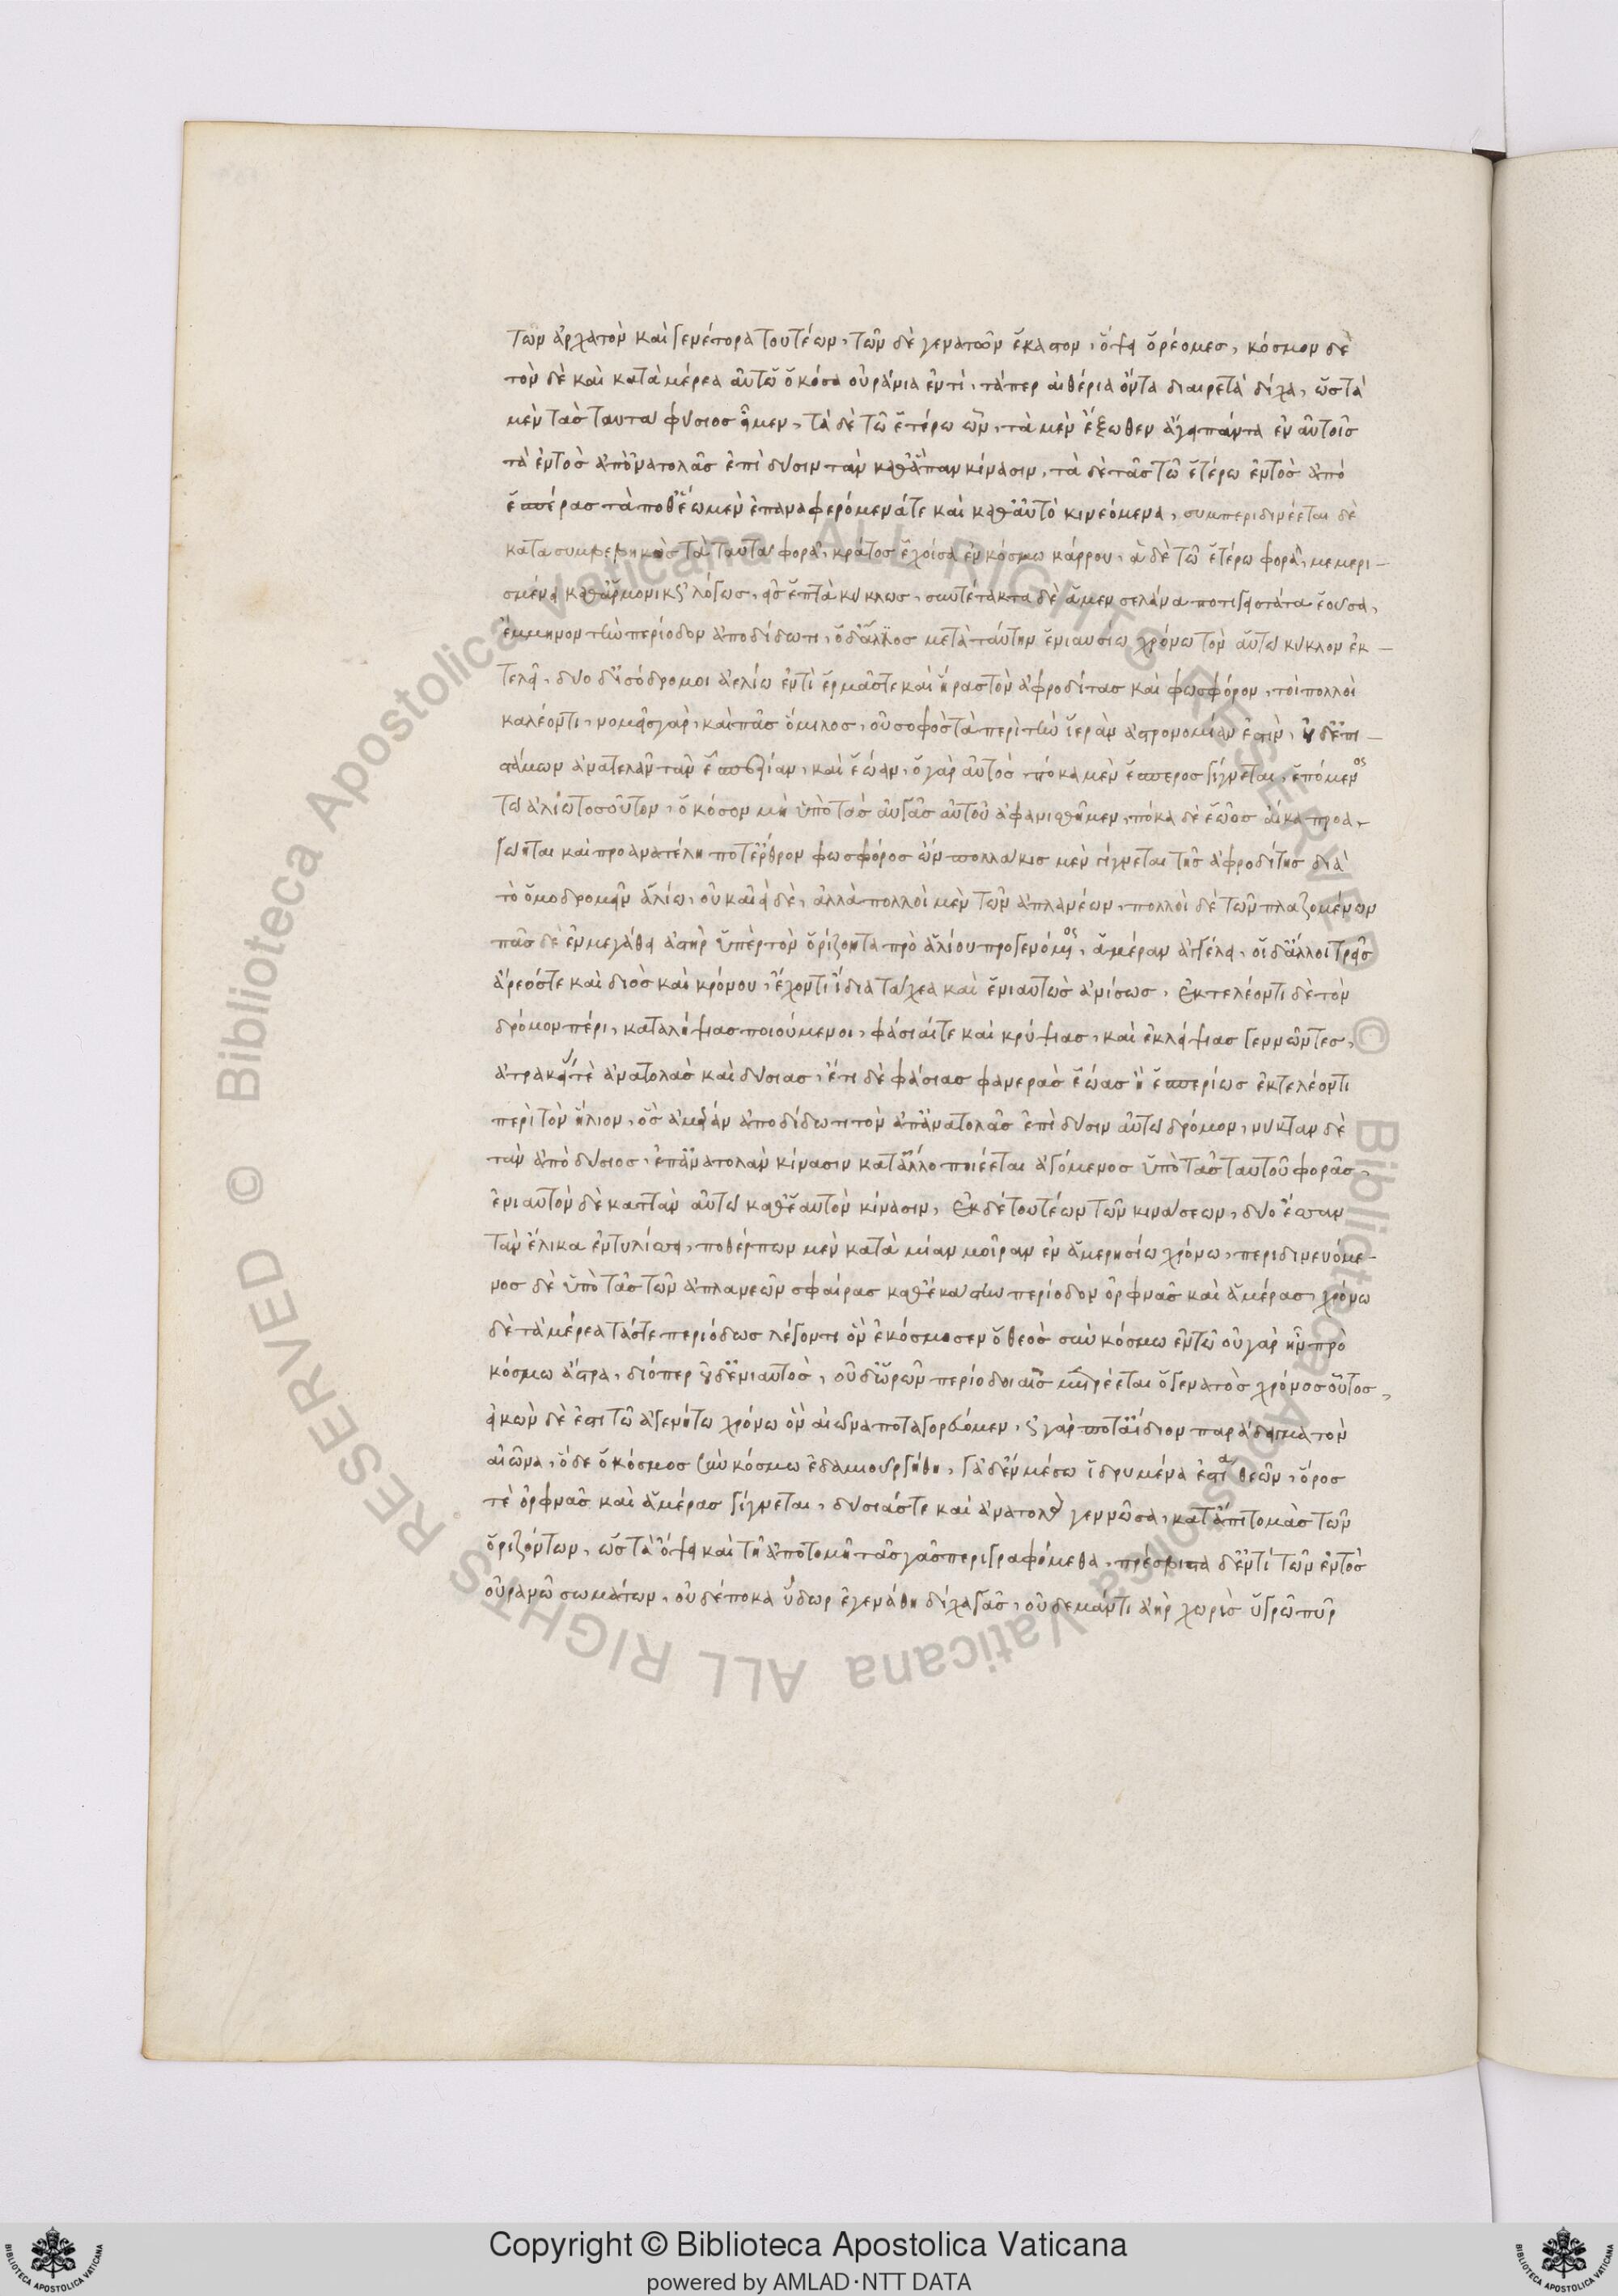 των ἀρχατὸν καὶ γενέτορα τουτέων, τῶν δὲ γενατῶν ἕκαστον, ὄψει ὁρέομες, κόσμον δὲ
τὸν δὲ καὶ κατὰ μέρεα αὐτῶ ὁκόσα οὐράνια ἐντί, τάπερ αἰθέρια ὄντα διαιρετὰ δίχα, ὥς τὰ
μὲν τᾶς ταυτῶ φύσιος εἶμεν, τὰ δὲ τῶ ἑτέρω ὧν, τὰ μὲν ἔξωθεν ἄγει πάντα ἐν αὐτοῖς
τὰ ἐντὸς ἀπ' ἀνατολᾶς ἐπὶ δύσιν τὰν καθ' ἅπαν κίνασιν, τὰ δὲ τᾶς τῶ ἑτέρω ἐντὸς ἀπὸ
ἑσπέρας τὰ ποθ' ἕω μὲν ἐπαναφερόμενά τε καὶ καθ' αὑτὸ κινεόμενα, συμπεριδινέεται δὲ
κατα συμβεβηκὸς τᾶ ταυτῶ φορᾶ, κράτος ἔχοισα ἐν κόσμω κάρρον, ἁ δὲ τῶ ἑτέρω φορὰ, μεμερι-
σμένα καθ' ἁρμονικοὺς λόγως, εἰς ἑπτὰ κύκλως, συντέτακτα δὲ ἁ μεν σελάνα ποτιγειοτάτα ἔοισα,
ἔμμηνον τὴν περίοδον ἀποδίδωτι, ὁ δ' ἄλιος μετὰ ταύτην ἐνιαυσίω χρόνω τὸν αὑτῶ κύκλον ἐκ-
τελεῖ, δύο δ' ἰσόδρομοι ἀελίω ἐντὶ ἑρμᾶς τε καὶ ἥρας τὸν ἀφροδίτας καὶ φωσφόρον, τοὶ πολλοὶ
καλέοντι, νομεῖς γὰρ, καὶ πᾶς ὅμιλος, οὐ σοφὸς τὰ περὶ τὴν ἱερὰν ἀστρονομίαν ἐστὶν, οὐδ' ἐπι-
στάμων ἀνατολᾶν τᾶν ἑσπερίαν, καὶ ἑώαν, ὁ γὰρ αὐτὸς πόκα μὲν ἕσπερος γίγνεται, ἑπόμενος
τῶ ἁλίω τοσοῦτον, ὁκόσον μὴ ὑπὸ τᾶς αὐγᾶς αὐτοῦ ἀφανισθῆμεν, πόκα δὲ ἑῶος αἴκα προα-
γῆται καὶ προανατέλη ποτ' ὄρθρον φωσφόρος ὢν πολλάκις μὲν γίγνεται τῆς ἀφροδίτης διὰ
τὸ ὁμοδρομεῖν ἁλίω, οὐκ αἰεὶ δὲ, ἀλλὰ πολλοὶ μὲν τῶν ἀπλανέων, πολλοὶ δὲ τῶν πλαζομένων
πᾶς δὲ ἐν μεγάθει ἀστὴρ ὑπὲρ τὸν ὁρίζοντα πρὸ ἁλίου προγενόμενος, ἁμέραν ἀγγέλει, οἱ δ' ἄλλοι τρεῖς
ἄρεός τε καὶ διὸς καὶ κρόνου, ἔχοντι ἴδια τάχεα καὶ ἐνιαυτὼς ἀνίσως, ἐκτελέοντι δὲ τὸν
δρόμον πέρι, καταλήψιας ποιούμενοι, φάσιάς τε καὶ κρύψιας, καὶ ἐκλείψιας γεννῶντες,
ἀτρακεῖς τὲ ἀνατολὰς καὶ δύσιας, ἔτι δὲ φάσιας φανερὰς ἑώας ἢ ἑσπερίως ἐκτελέοντι
περὶ τὸν ἥλιον, ὃς ἁμέραν ἀποδίδωτι τὸν ἀπ' ἀνατολᾶς ἐπὶ δύσιν αὐτῶ δρόμον, νύκταν δὲ
τὰν ἀπὸ δύσιος, ἐπ' ἀνατολὰν κίνασιν κατ' ἄλλο ποιέεται ἀγόμενος ὑπὸ τᾶς ταυτοῦ φορᾶς,
ἐνιαυτὸν δὲ καττὰν αὐτῶ καθ' ἑαυτὸν κίνασιν, ἐκ δὲ τουτέων τῶν κινάσεων, δύο ἐσσᾶν
τὰν ἕλικα ἐντυλίσσει, ποθέρπων μὲν κατὰ μίαν μοῖραν ἐν ἁμερησίω χρόνω, περιδινευόμε-
νος δὲ ὑπὸ τᾶς τῶν ἀπλανεῶν σφαίρας καθ' ἑκάσταν περίοδον ὀρφνᾶς καὶ ἁμέρας, χρόνω
δὲ τὰ μέρεα τάς τε περιόδως λέγοντι ὃν ἐκόσμασεν ὁ θεὸς σὺν κόσμω ἐντῶ οὐ γὰρ ἦν πρὸ
κόσμω ἄστρα, διόπερ οὐδ' ἐνιαυτὸς, οὐδ' ὡρῶν περίοδοι αἷς μετρέεται ὁ γενατὸς χρόνος οὗτος,
εἰκὼν δὲ ἐστι τῶ ἀγενάτω χρόνω ὃν αἰῶνα ποταγορεύομεν, ὡς γὰρ ποτ' ἀΐδιον παράδειγμα τὸν
αἰῶνα, ὅδε ὁ κόσμος σὺν κόσμω ἐδαμιουργήθη, γᾶ δ' ἐν μέσω ἱδρυμένα ἑστία θεῶν, ὅρος
τὲ ὀρφνᾶς καὶ ἁμέρας γίγνεται, δύσιάς τε καὶ ἀνατολὰς γεννῶσα, κατ' ἀποτομὰς τῶν
ὁριζόντων, ὡς τᾶ ὄψει καὶ τῆ ἀποτομῆ τᾶς γᾶς περιγραφόμεθα, πρέσβιστα δ' ἐντὶ τῶν ἐντὸς
οὐρανῶ σωμάτων, οὐδέποκα ὕδωρ ἐγενάθη δίχα γᾶς, οὐδεμάντι ἀὴρ χωρὶς ὑγρῶ πῦρ